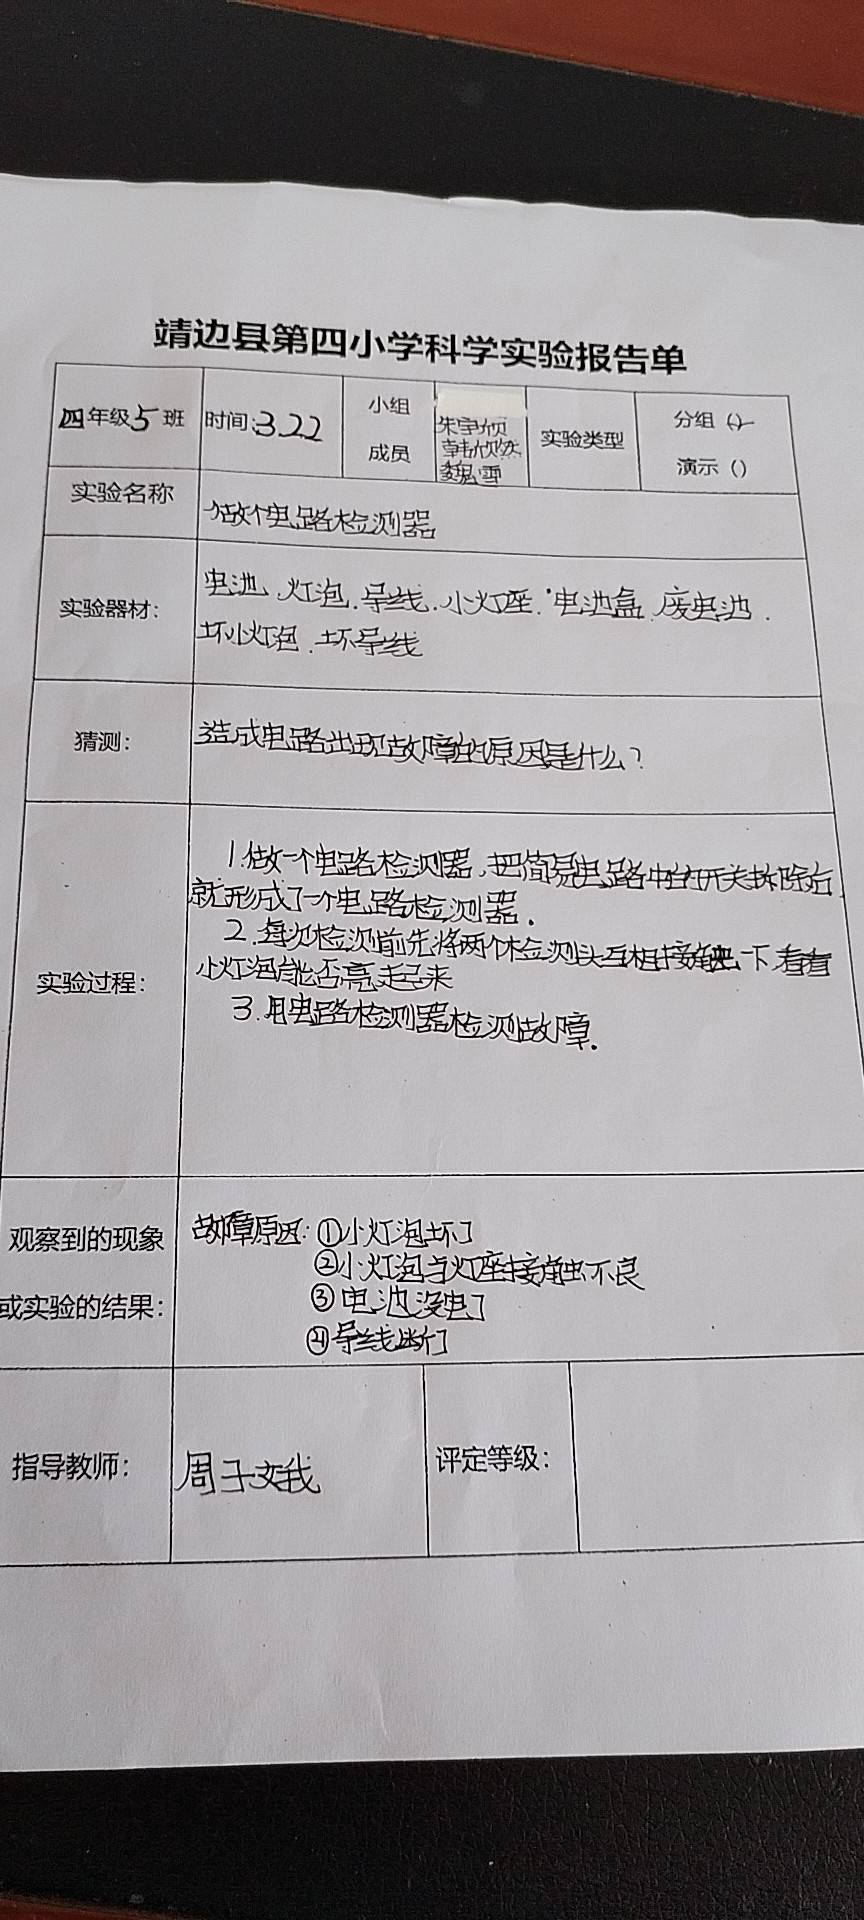 靖边县第四小学科学实验报告单
四年级5班
时间:3.22
小组
成员
朱宇欣
韩欣然
魏雪
实验类型
分组（✓）
演示（）
实验名称
做个电路检测器
实验器材：
电池、灯泡、导线、小灯座、电池盒、废电池、
坏小灯泡、坏导线
猜测：
造成电路出现故障的原因是什么？
实验过程：
1.做一个电路检测器，把简易电路中的开关拆除后，
就形成了一个电路检测器.
2.每次检测前先将两个检测头互相接触一下，看看
小灯泡能否亮起来
3.用电路检测器检测故障.
观察到的现象
或实验的结果：
故障原因：①小灯泡坏了
②小灯泡与灯座接触不良
③电池没电了
④导线断了
指导教师：
周子
评定等级：